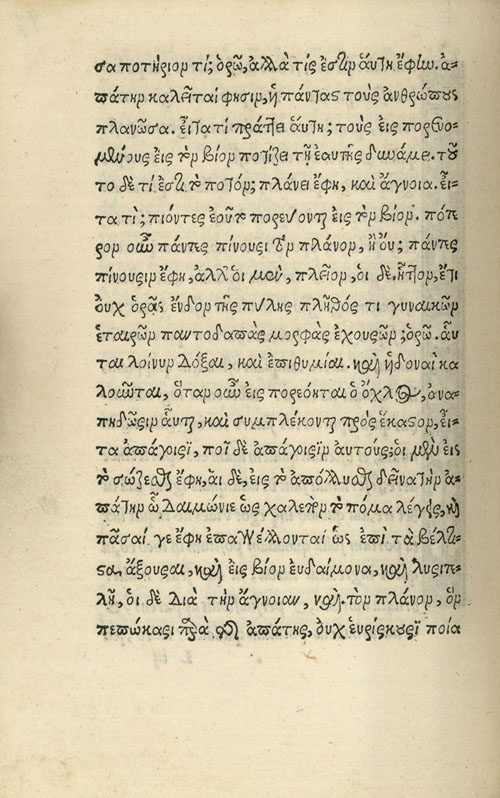 σα ποτήριον τί; ὁρῶ, ἀλλὰ τίς ἐστιν ἅυτη ἔφιω. ἀ-
πάτην καλεῖται φησιν, ἡ πάντας τοὺς ἀνθρώπους
πλανῶσα. εἶτα τί πράττει ἅυτη; τοὺς εἰς πορευο-
μένους εἰς τὸν βίον ποτίζει τῇ ἑαυτῆς δυνάμει. τοῦ
το δὲ τί ἐστι τὸ ποτόν; πλάνει ἔφη, καὶ ἄγνοια. εἶ-
τα τί; πιόντες τοῦτο πορεύονται εἰς τὸν βίον. πότε
ρον οὖν πάντες πίνουσι τὸν πλάνον, ἢ οὔ; πάντες
πίνουσιν ἔφη, ἀλλ' οἱ μὲν, πλεῖον, οἱ δὲ, ἧττον, ἔτι
οὐχ ὁρᾷς ἔνδον τῆς πύλης πλῆθός τι γυναικῶν
ἑταιρῶν παντοδαπὰς μορφὰς ἐχουσῶν; ὁρῶ. αὗ
ται τοίνυν Δόξαι, καὶ ἐπιθυμίαι. καὶ ἡδοναὶ κα
λοῦνται, ὅταν οὖν εἰς πορεύηται ὁ ὄχλος, ἀνα-
πηδῶσιν αὗται, καὶ συμπλέκονται πρὸς ἕκαστον, εἶ-
τα ἀπάγουσι, ποῖ δὲ ἀπάγουσιν αὐτούς; οἱ μὲν εἰς
τὸ σώζεσθαι ἔφη, αἱ δὲ, εἰς τὸ ἀπόλλυσθαι δεῖνα τὴν ἀ-
πάτην ὦ Δαιμόνιε ὡς χαλεπὸν τὸ πόμα λέγεις, καὶ
πᾶσαί γε ἔφη ἐπαγγέλλονται ὡς ἐπὶ τὰ βέλτι-
στα, ἄξουσαι, καὶ εἰς βίον ἐυδαίμονα, καὶ λυσιτε-
λῆ, ὁι δὲ Διὰ τὴν ἄγνοιαν, καὶ. τὸν πλάνον, ὃν
πεπώκασι παρὰ τῆς ἀπάτης, οὐχ ἑυρίσκουσι ποία